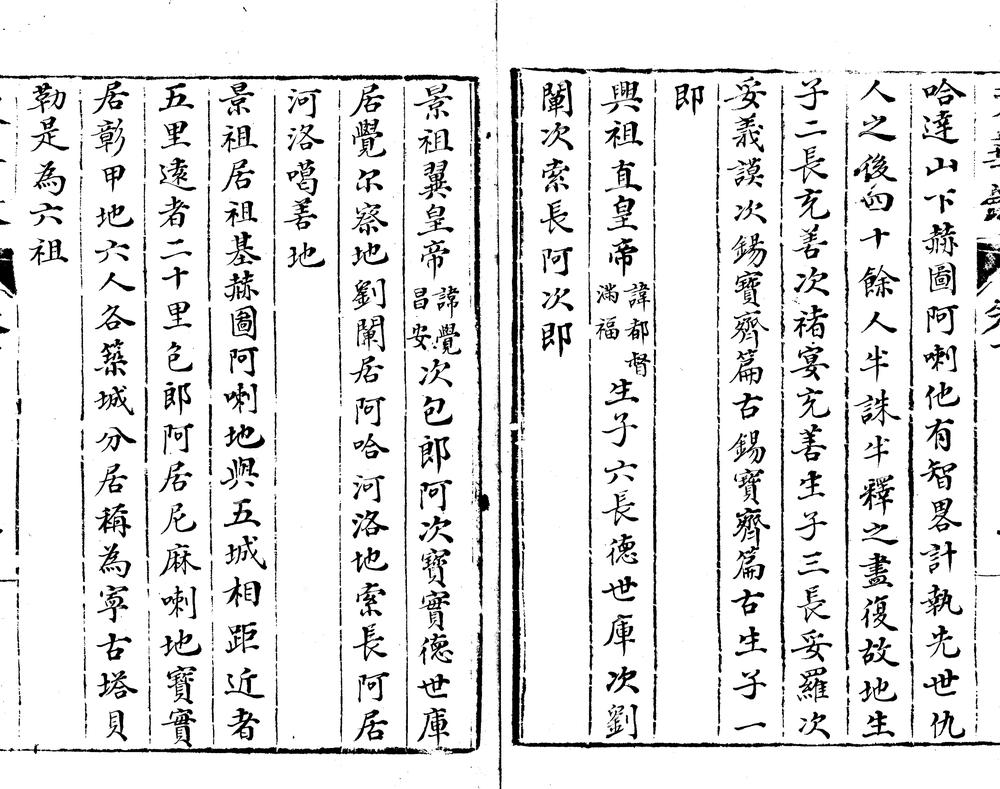 哈達山下赫圖阿喇他有智畧計執先世仇
人之後四十餘人半誅半釋之盡復故地生
子二長充善次禇宴充善生子三長妥羅次
妥義謨次錫寶齊篇古錫寶齊篇古生子一
即
興祖直皇帝諱都督滿福生子六長德世庫次劉
闡次索長阿次即
景祖翼皇帝諱覺昌安次包郎阿次寶實德世庫
居覺尔察地劉闡居阿哈河洛地索長阿居
河洛噶善地
景祖居祖基赫圖阿喇地與五城相距近者
五里遠者二十里包郎阿居尼麻喇地寶實
居彰甲地六人各築城分居稱為寧古塔貝
勒是為六祖